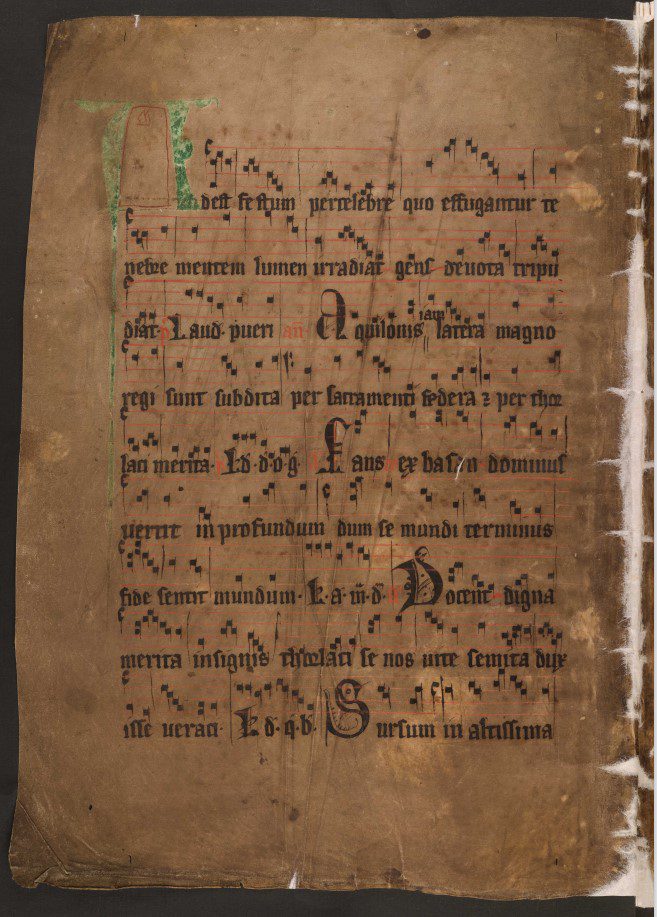 Adest festum percelebre quo effugantur te
nebre mentem lumen irradiat gens deuota tripu
diat. Laud. pueri an̄ Aquilonis iam latera magno
regi sunt subdita per sacramenti federa ⁊ per thor
laci merita. L.d.d.o.g. Eans ex basan dominus
uertit in profundum dum se mundi terminus
fide sentit mundum. L.a.m̄.d̄. Docent digna
merita insignis thorlaci se nos uite semita dux
isse ueraci. L.d.q.b. Sursum in altissima